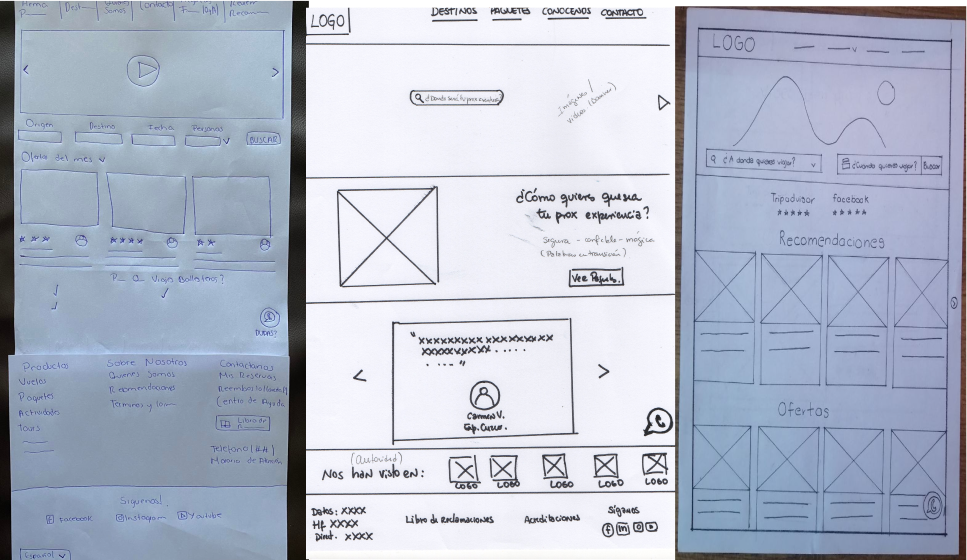 Dest
Somos
Contacto
Origen
Destino
Fecha
Personas
BUSCAR
Ofertas del mes
Viajes Ballesteros?
DUDAS?
Productos
Vuelos
Paquetes
Actividades
Tours
Sobre Nosotros
Quienes Somos
Recomendaciones
Terminos y
Contactanos
Mis Reservas
Centro de Ayuda
Libro de
Telefono (##)
Horario de Atención
Siguenos!
Facebook
Instagram
Youtube
Español
LOGO
DESTINOS PAQUETES CONOCENOS CONTACTO
Imágenes /
videos
¿Cómo quiero que sea
tu prox experiencia?
Segura - confiable - mágica
(Palabras en transición)
Ver Paquete.
"XXXXXXXXXXXXXXXXXX
XXXXXXXXX .....
.... "
Carmen V.
Exp. Cusco.
(Autoridad)
Nos han visto en:
LOGO LOGO LOGO LOGO LOGO
Datos: XXXX
Hf XXXX
Direct. XXXX
Libro de Reclamaciones
Acreditaciones
Síganos
LOGO
¿A donde quieres viajar?
¿Cuando quieres viajar?
Buscar
Tripadvisor facebook
Recomendaciones
Ofertas